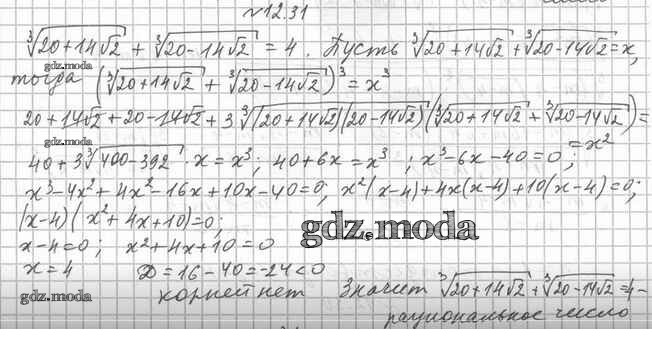 №12.31
∛(20+14√2) + ∛(20-14√2) = 4. Пусть ∛(20+14√2) + ∛(20-14√2) = x,
gdz.moda
тогда (∛(20+14√2) + ∛(20-14√2))³ = x³
gdz.moda
20+14√2+20-14√2+3∛((20+14√2)(20-14√2)) (∛(20+14√2) + ∛(20-14√2)) =
= x²
40+3∛(400-392) · x = x³; 40+6x = x³; x³-6x-40=0;
x³-4x²+4x²-16x+10x-40=0; x²(x-4)+4x(x-4)+10(x-4)=0;
(x-4)(x²+4x+10)=0;
gdz.moda
x-4=0; x²+4x+10=0
x=4 D=16-40=-24<0
gdz.moda
корней нет Значит ∛(20+14√2) + ∛(20-14√2) = 4-
рациональное число